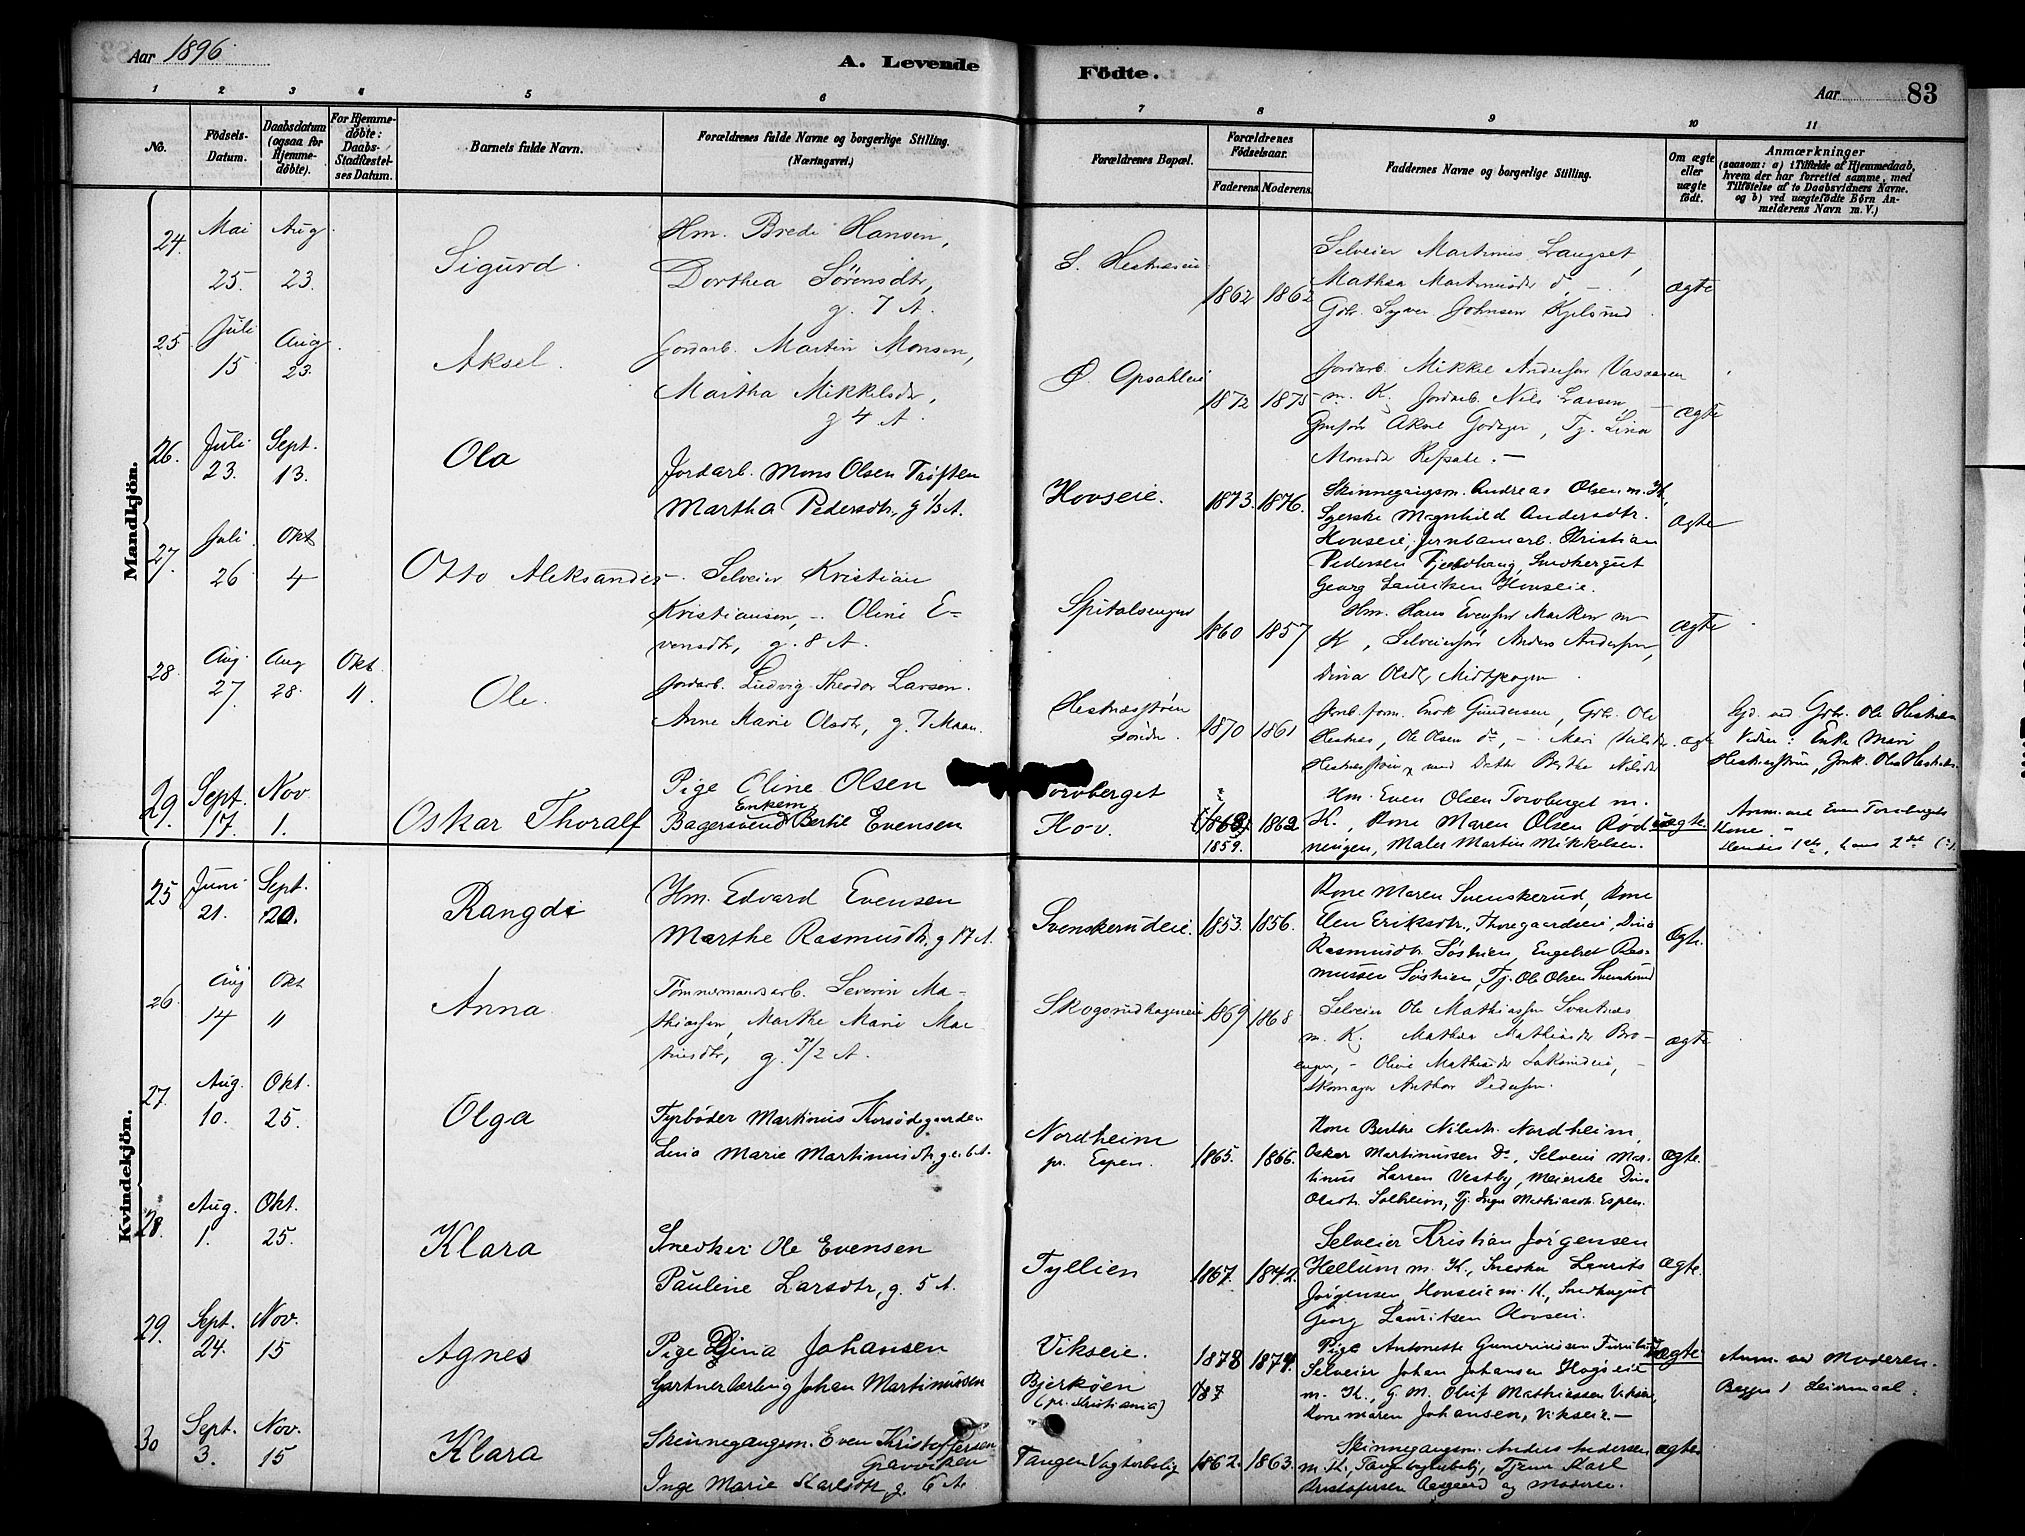 Aar 1896
A. Levende Födte.
Aar 83
1 2 3 4 5 6 7 8 9 10 11
No.
Födsels-Datum.
Daabsdatum (ogsaa for Hjemmedöbte).
For Hjemmedöbte: Daabs-Stadfæstelses Datum.
Barnets fulde Navn.
Forældrenes fulde Navne og borgerlige Stilling. (Næringsvei.)
Forældrenes Bopæl.
Forældrenes Födselsaar.
Faderens. Moderens.
Faddernes Navne og borgerlige Stilling.
Om ægte eller uægte födt.
Anmærkninger
(saasom: a) i Tilfælde af Hjemmedaab, hvem der har forrettet samme, med Tilföielse af to Daabsvidners Navne. og b) ved uægtefödte Börn Anmelderens Navn m. V.)
Mandkjön.
24
Mai 25
Aug 23.
Sigurd.
Hm. Brede Hansen,
Dorthea Sørensdtr,
g. 7 A.
S. Hestnæseie
1862 1862
Selveier Martinus Langset,
Mathea Martinusdtr do -
Gbr. Syver Johnsen Kjelsrud.
ægte
25
Juli 15
Aug. 23.
Aksel.
Jordarb. Martin Monsen,
Martha Mikkelsdtr,
g 4 A.
Ø. Opsahleie
1872 1875
Jordarb. Mikkel Andersen Vasaasen
m. K. Jordarb. Nils Larsen
Tj. Lina
Monsdtr
ægte
26.
Juli 23.
Sept. 13.
Ola
Jordarb. Mons Olsen Trøften
Martha Pedersdtr, g 1/3 A.
Hovseie.
1873. 1876.
Skinnegangsm. Andreas Olsen m. K,
Syerske Magnhild Andersdtr.
Hovseie, Jernbanearb. Kristian
Pedersen Snedkergut
Georg Lauritsen Hovseie.
ægte
27.
Juli 26
Okt 4
Otto Aleksander.
Selveier Kristian
Kristiansen, - Oline E-
vensdtr, g. 8 A.
Spitalsengen
1860 1857
Hm. Hans Evensen Marken m
K, Anders Andersen,
Dina Olsdtr Midtskogen.
ægte
28.
Aug. 27.
Aug 28.
Okt. 11.
Ole.
Jordarb. Ludvig Theodor Larsen.
Anne Marie Olsdtr, g. 7 Maan.
søndre.
1870 1861
Gundersen, Gbr. Ole
Hestnæs, Ole Olsen do, - Mari Nilsdtr.
med Datter Berthe Nilsdtr
ægte
Hjd. ved Gbr. Ole Hestnæs
Vidner: Enke Mari
29.
Sept. 17.
Nov. 1.
Oskar Thoralf
Pige Oline Olsen
Enkem.
Bagersvend Bertil Evensen
Torvberget
Hov.
1862
1859.
Hm. Even Olsen Torvberget m.
K., Kone Maren Olsen Rød
ningen, Maler Martin Mikkelsen.
uægte.
Anm. ved Even Torvbergets
Kone. -
Hendes 1ste, hans 2det (?).
Kvindekjön.
25
Juni 21.
Sept. 20.
Rangdi
Hm. Edvard Evensen
Marthe Rasmusdtr, g 17 A.
Svenskerudeie.
1853. 1856.
Kone Maren Svenskerud, Kone
Elen Eriksdtr., Thoregaardseie, Dina
Rasmusdtr Engebret Ras-
mussen Tj. Ole Olsen Svenskerud
Ægte.
26.
Aug 14
Okt 11
Anna.
Tømmermandsarb. Severin Ma-
thiassen, Marthe Marie Mar-
tinusdtr, g. 3 1/2 A.
Skogsrudhageneie
1869 1868
Selveier Ole Mathiassen Svartnæs
m. K. Mathea Mathiasdtr Bro-
engen, - Oline Mathiasdtr
Skomager Anthon Pedersen.
ægte
27.
Aug. 10.
Okt. 25.
Olga
Fyrbøder Martinus Korsødegaarden
Lina Marie Martinusdtr, g. 6 A.
Nordheim
pr. Espen.
1865. 1866.
Kone Berthe Nilsdtr. Nordheim,
Oskar Martinussen Do., Selveier Mar-
tinus Larsen Vestby, Meierske Dina
Olsdtr. Solheim, Tj. Inga Mathiasdtr. Espen.
ægte.
28.
Aug. 1.
Okt. 25.
Klara
Snedker Ole Evensen
Pauline Larsdtr, g. 5 A.
Tyllien
1867. 1872.
Selveier Kristian Jørgensen
Hellum m. K., Snedker Laurits
Jørgensen, Hovseie m. K., Snedkergut
Georg Lauritsen Hovseie.
ægte.
29.
Sept. 24.
Nov. 15
Agnes
Pige Dina Johansen
Gartnerlærling Johan Martinussen
Vikseie.
Bjerkøen
(pr. Kristiania)
1878 1874.
187
Pige Antonette Gunerinusen
Selveier Johan Johansen
m. K., g. M. Oluf Mathiassen Vikseie,
Kone Maren Johansen, Vikseie. -
uægte
Anm. ved Moderen.
Begges 1 Leiermaal.
30
Sept. 3.
Nov. 15
Klara
Skinnegangsm. Even Kristoffersen
Inge Marie Karlsdtr, g. 6 A.
Tangen Vogterbolig
1862. 1863.
Skinnegangsm. Anders Andersen
m. K., Tangen Vogterbolig, Karl
Kristofersen Aasgaard og Moderen.
ægte